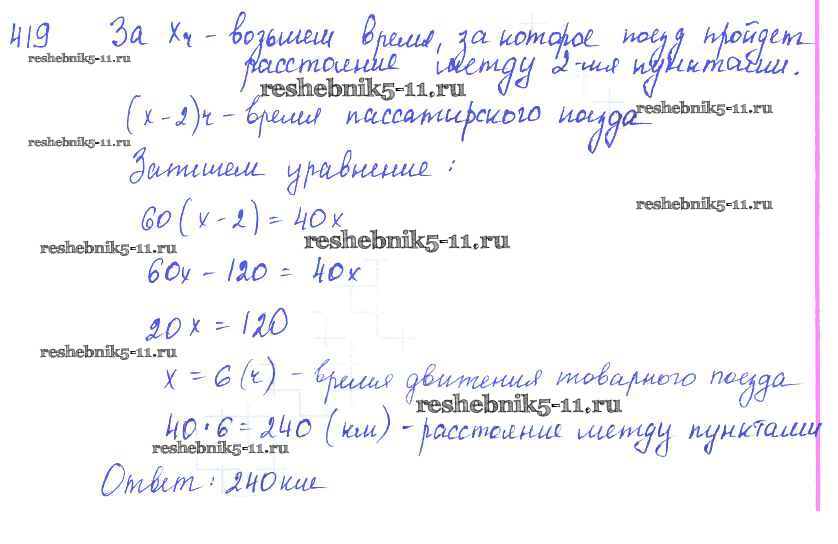 419 За x ч - возьмем время, за которое поезд пройдет
reshebnik5-11.ru
расстояние между 2-мя пунктами.
reshebnik5-11.ru
(x-2)ч - время пассажирского поезда
reshebnik5-11.ru
reshebnik5-11.ru
Запишем уравнение:
reshebnik5-11.ru
60(x-2)=40x
reshebnik5-11.ru
reshebnik5-11.ru
60x-120=40x
20x=120
reshebnik5-11.ru
x=6(ч) - время движения товарного поезда
reshebnik5-11.ru
40·6=240 (км) - расстояние между пунктами
reshebnik5-11.ru
Ответ: 240км